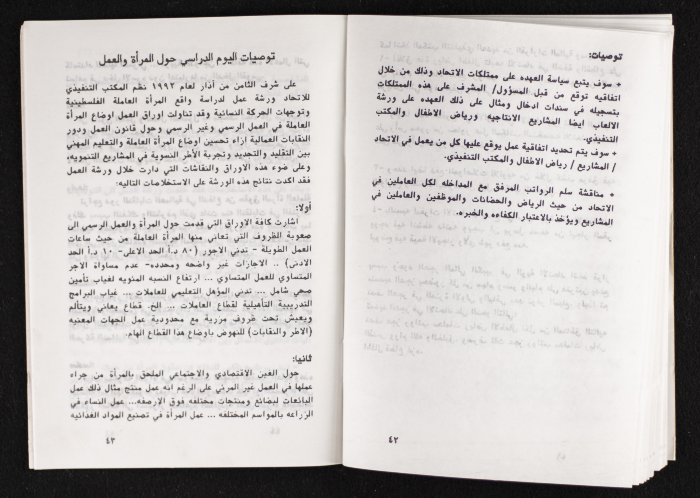 توصيات:
+ سوف يتبع سياسة العهده على ممتلكات الاتحاد وذلك من خلال
اتفاقيه توقع من قبل المسؤول/ المشرف على هذه الممتلكات
بتسجيله في سندات ادخال ومثال على ذلك العهده على ورشة
الالعاب ايضا المشاريع الانتاجيه ورياض الاطفال والمكتب
التنفيذي.
+ سوف يتم تحديد اتفاقية عمل يوقع عليها كل من يعمل في الاتحاد
/ المشاريع / رياض الاطفال والمكتب التنفيذي.
+ مناقشة سلم الرواتب المرفق مع المداخله لكل العاملين في
الاتحاد من حيث الرياض والحضانات والموظفين والعاملين في
المشاريع ويؤخذ بالاعتبار الكفاءه والخبره.
٤٢
توصيات اليوم الدراسي حول المرأة والعمل
على شرف الثامن من آذار لعام ١٩٩٢ نظم المكتب التنفيذي
للاتحاد ورشة عمل لدراسة واقع المرأة العاملة الفلسطينية
وتوجهات الحركة النسائية وقد تناولت اوراق العمل اوضاع المرأة
العاملة في العمل الرسمي وغير الرسمي وحول قانون العمل ودور
النقابات العمالية ازاء تحسين اوضاع المرأة العاملة والتعليم المهني
بين التقليد والتجديد وتجربة الأطر النسوية في المشاريع التنمويه،
وعلى ضوء هذه الاوراق والنقاشات التي دارت خلال ورشة العمل
فقد اكدت نتائج هذه الورشة على الاستخلاصات التاليه:
أولا:
اشارت كافة الاوراق التي قدمت حول المرأة والعمل الرسمي الى
صعوبة الظروف التي تعاني منها المرأة العاملة من حيث ساعات
العمل الطويلة - تدني الاجور (٨٠ د.أ الحد الاعلى- ١٠ د.أ الحد
الادنى) .. الاجازات غير واضحه ومحدده- عدم مساواة الاجر
المتساوي للعمل المتساوي ... ارتفاع النسبه المئويه لغياب تأمين
صحي شامل ... تدني المؤهل التعليمي للعاملات ... غياب البرامج
التدريبية التأهيلية لقطاع العاملات ... الخ. قطاع يعاني ويتألم
ويعيش تحت ظروف مزرية مع محدودية عمل الجهات المعنيه
(الاطر والنقابات) للنهوض باوضاع هذا القطاع الهام.
ثانيا:
حول الغبن الاقتصادي والاجتماعي الملحق بالمرأة من جراء
عملها في العمل غير المرئي على الرغم انه عمل منتج مثال ذلك عمل
البائعات لبضائع ومنتجات مختلفه فوق الارصفه... عمل النساء في
الزراعه بالمواسم المختلفه ... عمل المرأة في تصنيع المواد الغذائيه
٤٣